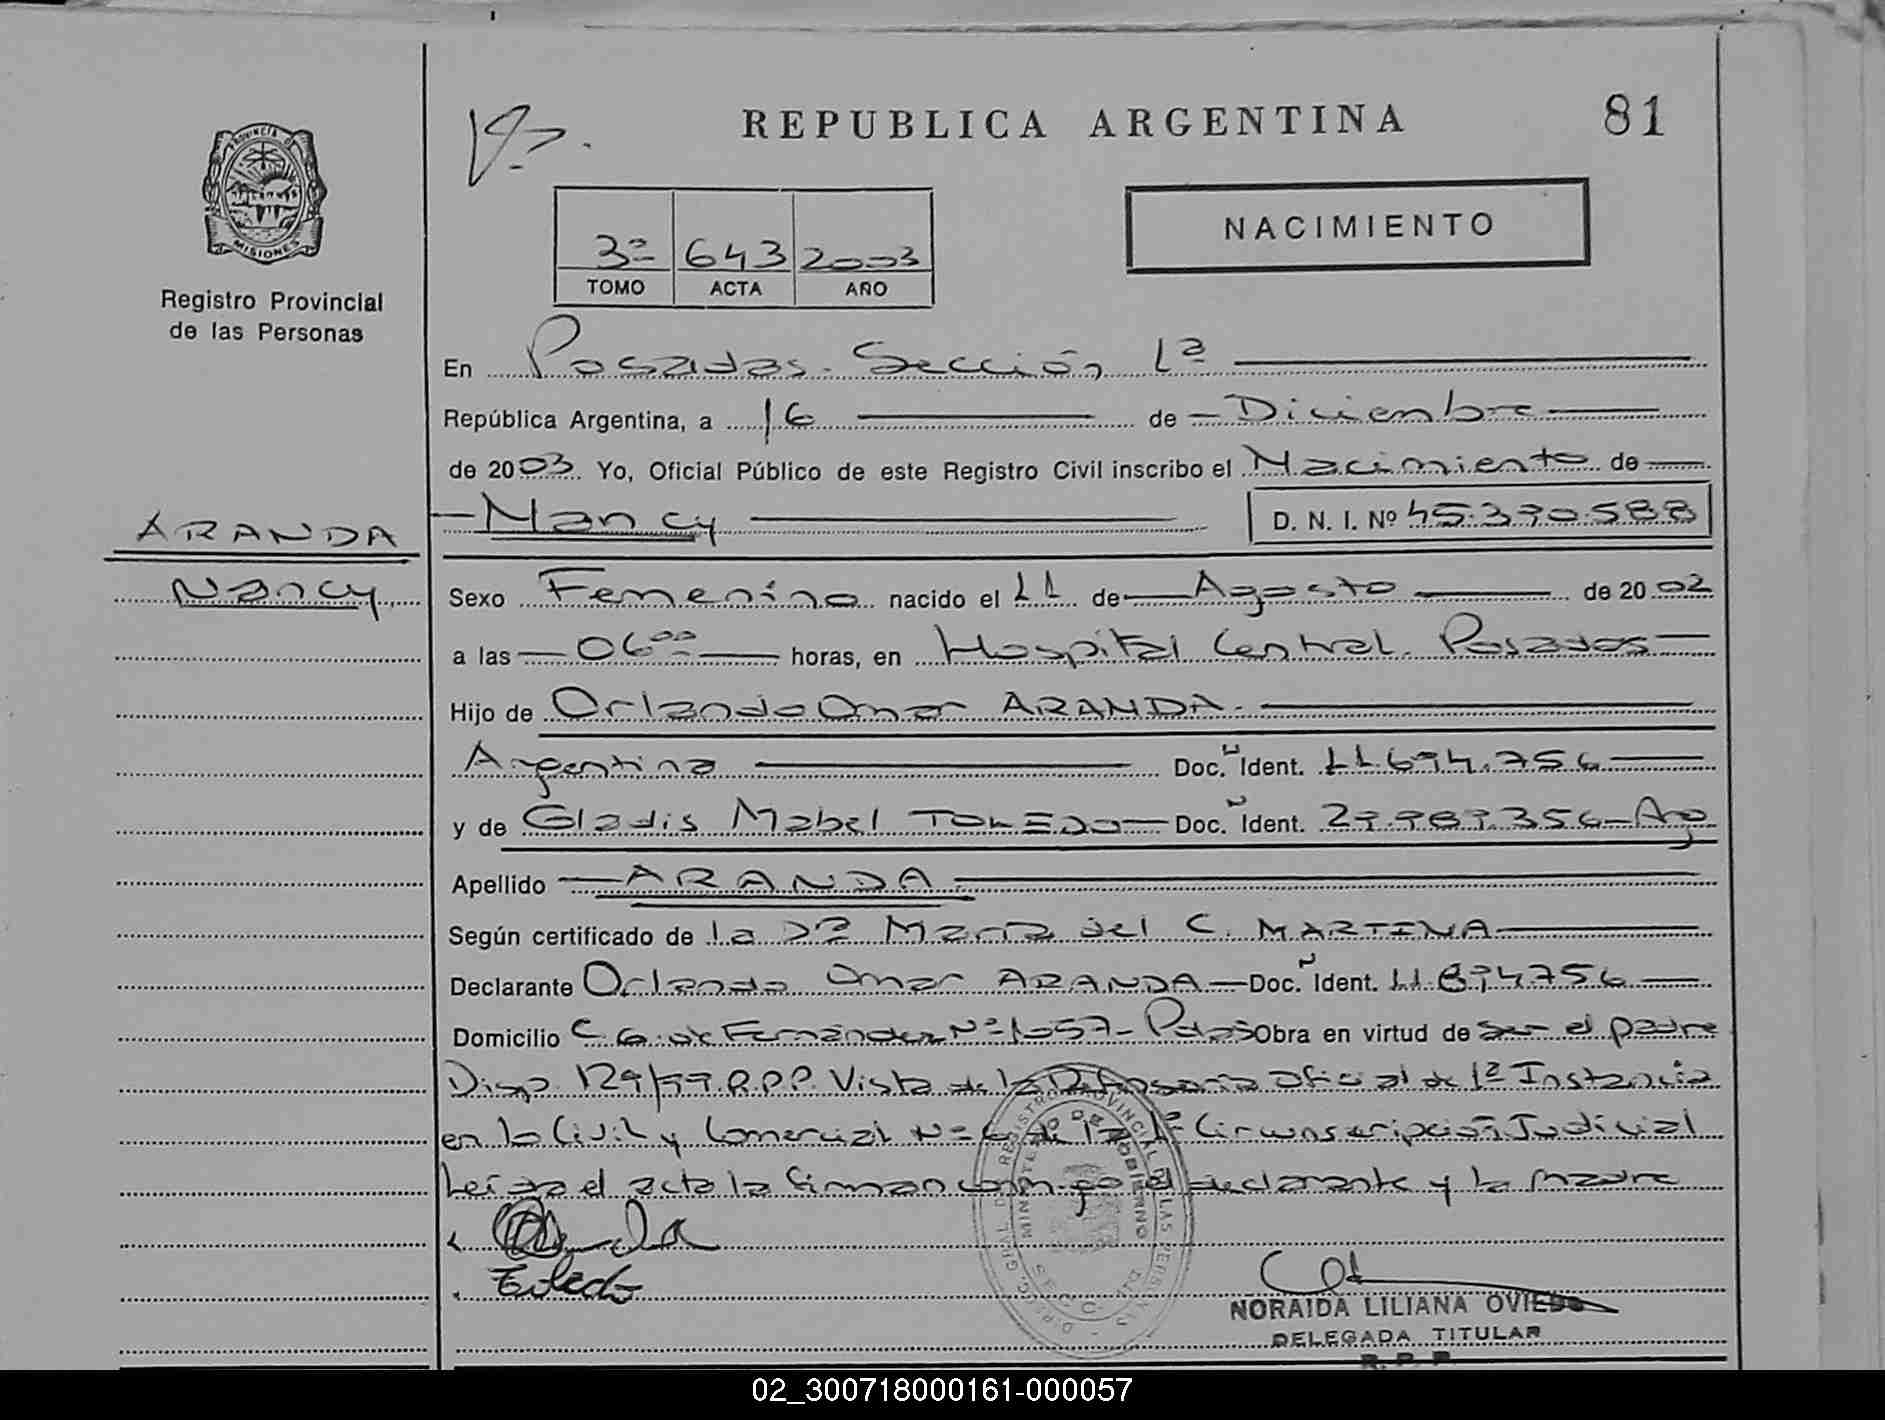 REPUBLICA ARGENTINA
81
PROVINCIA DE MISIONES
Registro Provincial
de las Personas
3º 643 2003
TOMO ACTA AÑO
NACIMIENTO
En Posadas. Sección 1ª
República Argentina, a 16 de Diciembre
de 2003. Yo, Oficial Público de este Registro Civil inscribo el Nacimiento de
Nancy
D. N. I. Nº 45.390.588
ARANDA
Nancy
Sexo Femenino nacido el 11 de Agosto de 2002
a las 06⁰⁰ horas, en Hospital Central. Posadas
Hijo de Orlando Omar ARANDA.
Argentina Doc. Ident. 11.694.756
y de Gladis Mabel TOLEDO Doc. Ident. 29.989.356 Arg
Apellido ARANDA
Según certificado de la Dª María del C. MARTINA
Declarante Orlando Omar ARANDA Doc. Ident. 11.894756
Domicilio C. G. de Fernández Nº 1057- Pdas Obra en virtud de ser el padre
Disp. 129/99. R.P.P. Vista de la Defensoría Oficial de 1ª Instancia
en lo Civil y Comercial Nº 6 de la 1ª Circunscripción Judicial
Leída el acta la firman conmigo el declarante y la madre
Toledo
DIREC. GRAL. DE REGISTRO PROVINCIAL DE LAS PERSONAS
MINISTERIO DE GOBIERNO
NORAIDA LILIANA OVIEDO
DELEGADA TITULAR
R. P. P.
02_300718000161-000057